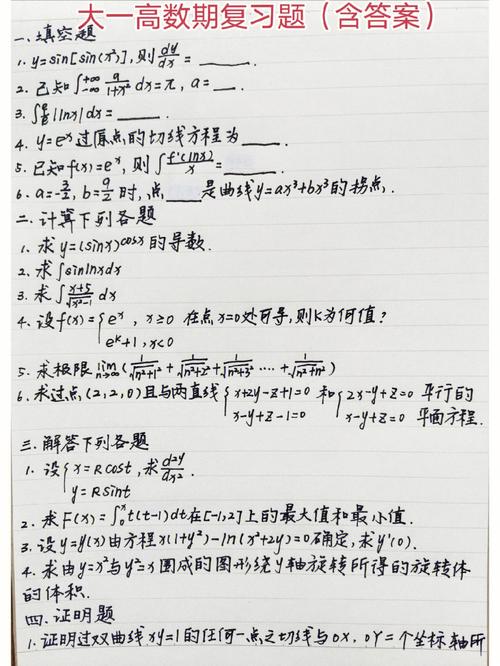 大一高数期复习题（含答案）
一、填空题
1. y=sin[sin(x²)],则dy/dx = ____.
2. 已知∫_{-∞}^{+∞} a/(1+x²) dx=π, a=__.
3. ∫|lnx|dx=____.
4. y=eˣ过原点的切线方程为____.
5. 已知f(x)=eˣ, 则∫f'(lnx)/x=____.
6. a=-3/2, b=9/2时,点____是曲线y=ax³+bx²的拐点.
二、计算下列各题
1. 求y=(sinx)^{cosx}的导数.
2. 求∫sinlnxdx
3. 求∫(x+5)/√(x²-1) dx
4. 设f(x)={eˣ, x≥0 在点x=0处可导,则k为何值?
eᵏ+1, x<0
5. 求极限lim_{n→∞}(1/√(n²+1²)+1/√(n²+2²)+1/√(n²+3²)....+1/√(n²+n²))
6. 求过点(2,2,0)且与两直线{x+2y-z+1=0 和{2x-y+z=0 平行的
x-y+z-1=0 x-y+z=0 平面方程.
三、解答下列各题
1. 设{x=Rcost,求d²y/dx².
y=Rsint
2. 求F(x)=∫₀ˣt(t-1)dt在[-1,2]上的最大值和最小值.
3. 设y=y(x)由方程x(1+y²)-ln(x²+2y)=0确定,求y'(0).
4. 求由y=x²与y²=x围成的图形绕y轴旋转所得的旋转体
的体积.
四、证明题
1. 证明过双曲线xy=1的任何一点之切线与OX,OY=个坐标轴所